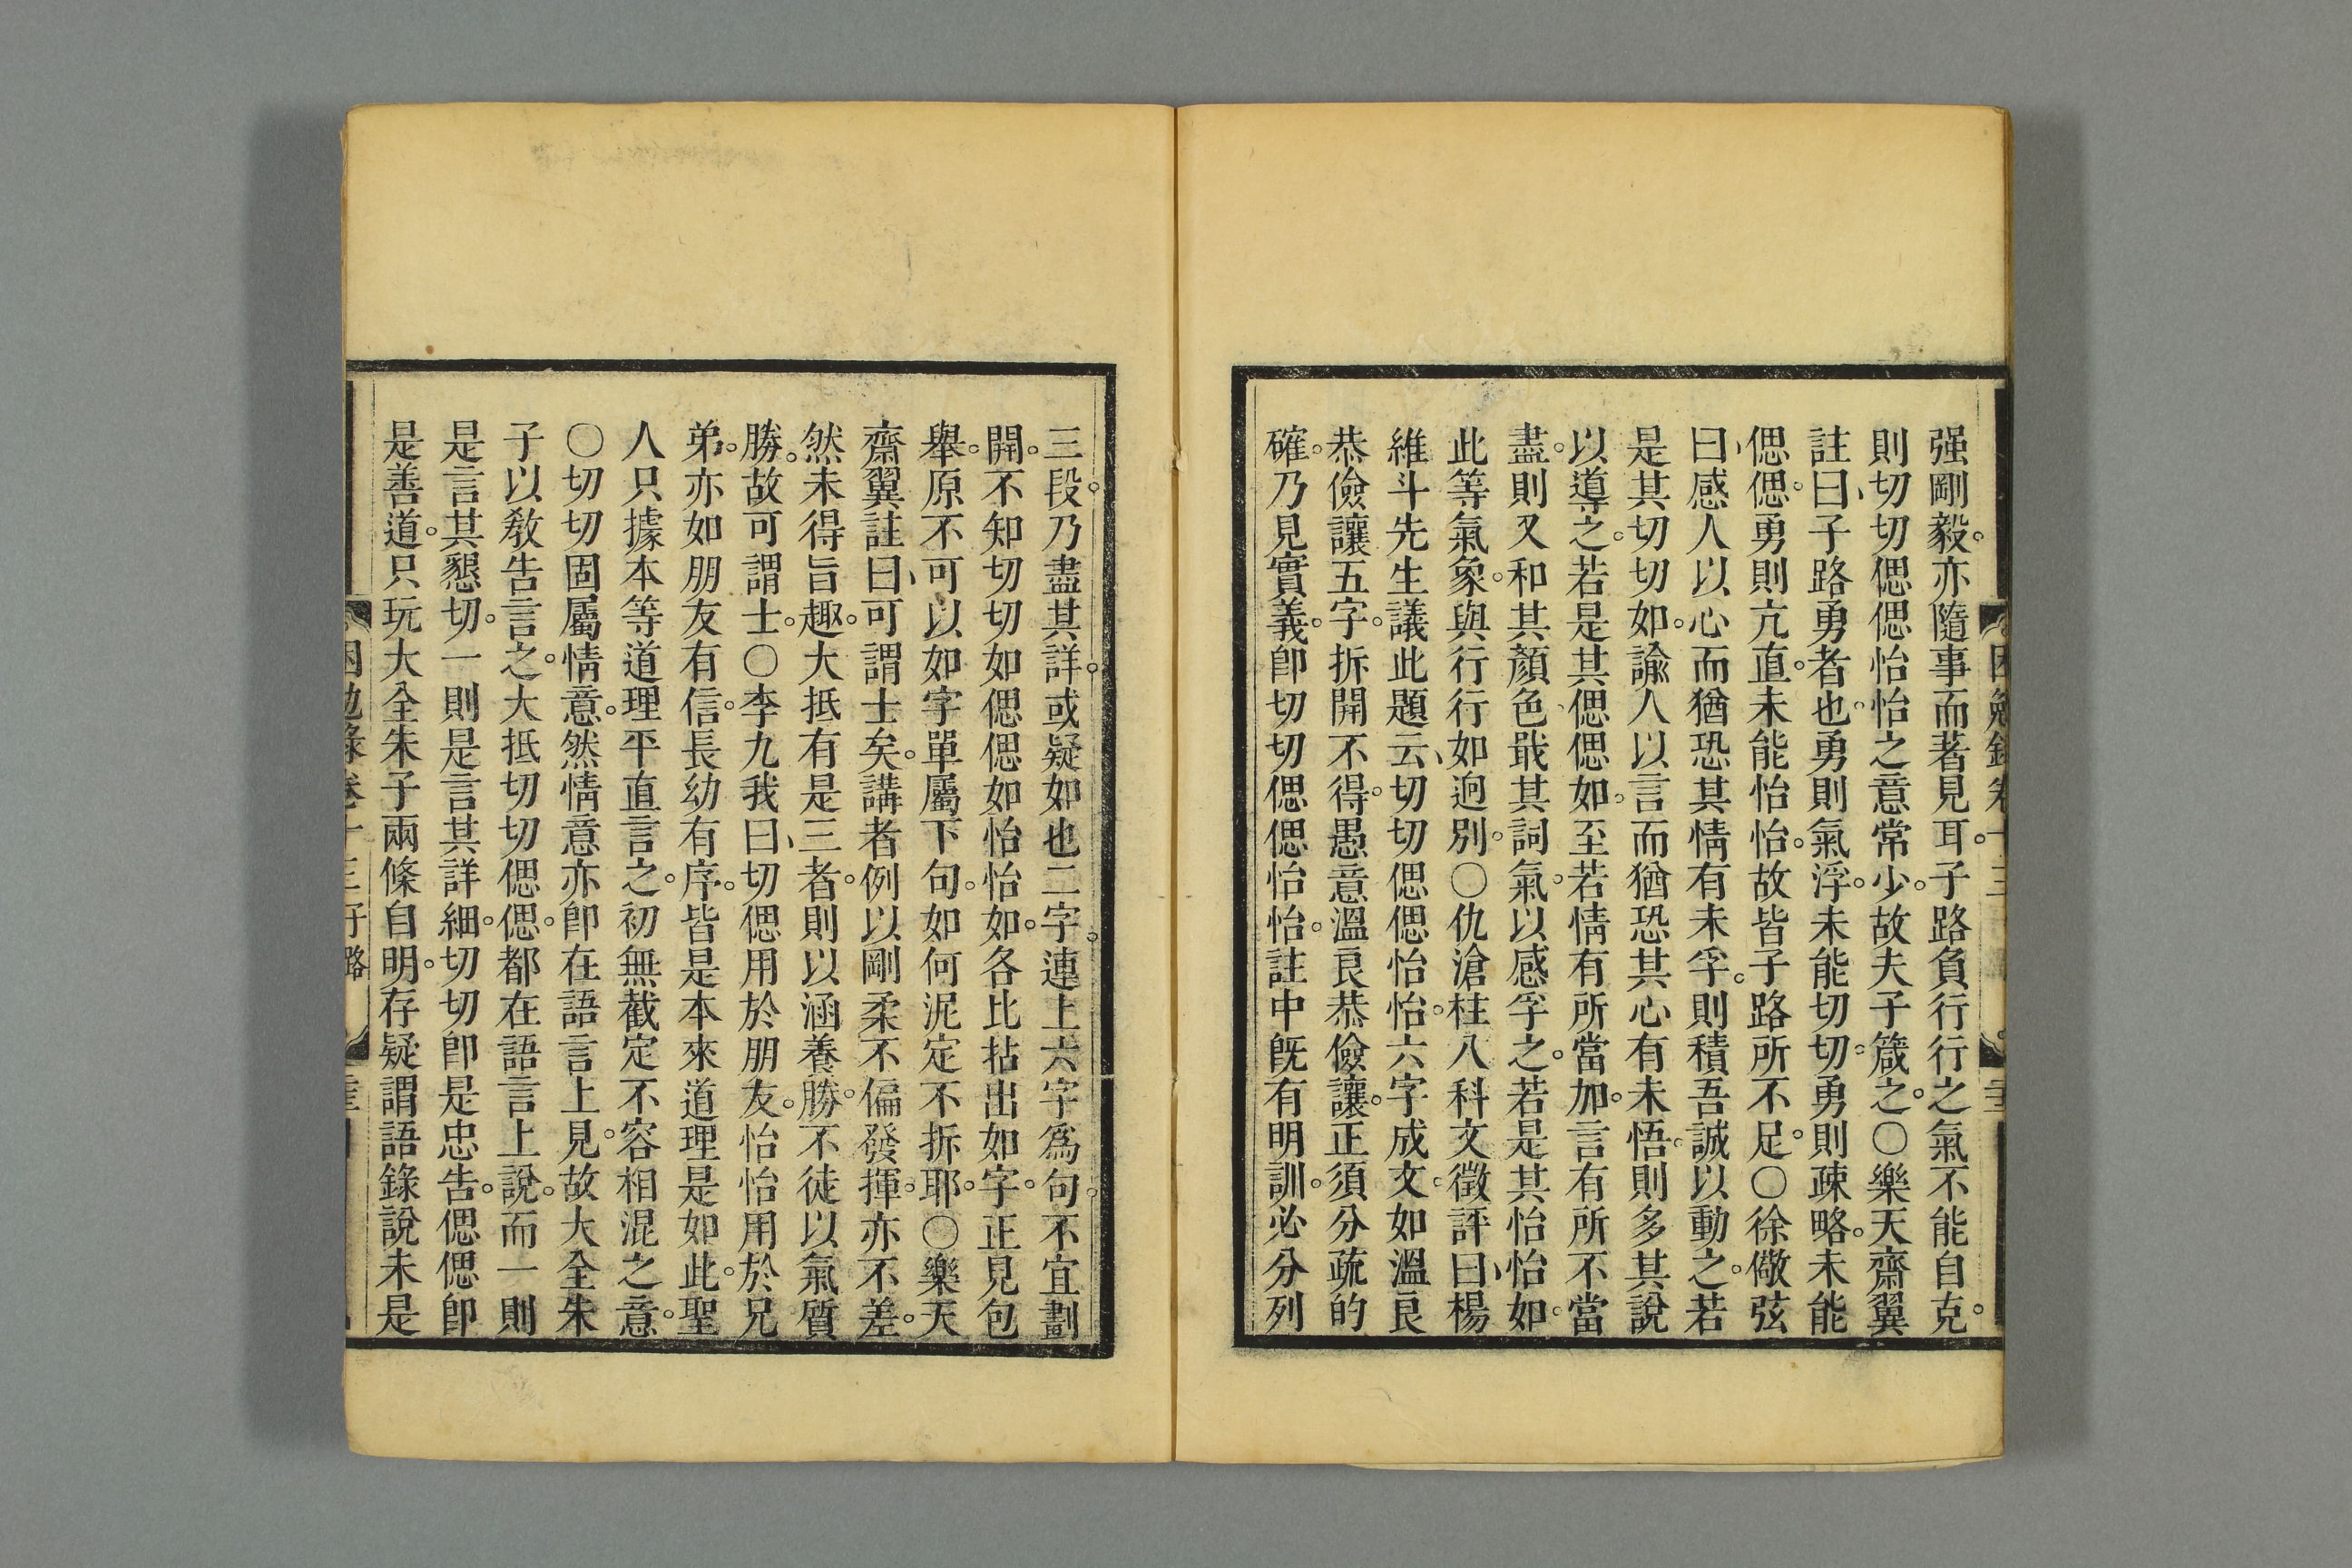 困勉錄卷十三
强剛毅亦隨事而著見耳子路負行行之氣不能自克
則切切偲偲怡怡之意常少故夫子箴之○樂天齋翼
註曰子路勇者也勇則氣浮未能切切勇則疎略未能
偲偲勇則亢直未能怡怡故皆子路所不足○徐儆弦
曰感人以心而猶恐其情有未孚則積吾誠以動之若
是其切切如諭人以言而猶恐其心有未悟則多其說
以導之若是其偲偲如至若情有所當加言有所不當
盡則又和其顏色戢其詞氣以感孚之若是其怡怡如
此等氣象與行行如逈別○仇滄柱八科文徵評曰楊
維斗先生議此題云切切偲偲怡怡六字成文如溫良
恭儉讓五字拆開不得愚意溫良恭儉讓正須分疏的
確乃見實義卽切切偲偲怡怡註中旣有明訓必分列
三段乃盡其詳或疑如也二字連上六字爲句不宜劃
開不知切切如偲偲如怡怡如各比拈出如字正見包
舉原不可以如字單屬下句如何泥定不拆耶○樂天
齋翼註曰可謂士矣講者例以剛柔不偏發揮亦不差
然未得旨趣大抵有是三者則以涵養勝不徒以氣質
勝故可謂士○李九我曰切偲用於朋友怡怡用於兄
弟亦如朋友有信長幼有序皆是本來道理是如此聖
人只據本等道理平直言之初無截定不容相混之意
○切切固屬情意然情意亦卽在語言上見故大全朱
子以敎告言之大抵切切偲偲都在語言上說而一則
是言其懇切一則是言其詳細切切卽是忠告偲偲卽
是善道只玩大全朱子兩條自明存疑謂語錄說未是
困勉錄卷十三子路